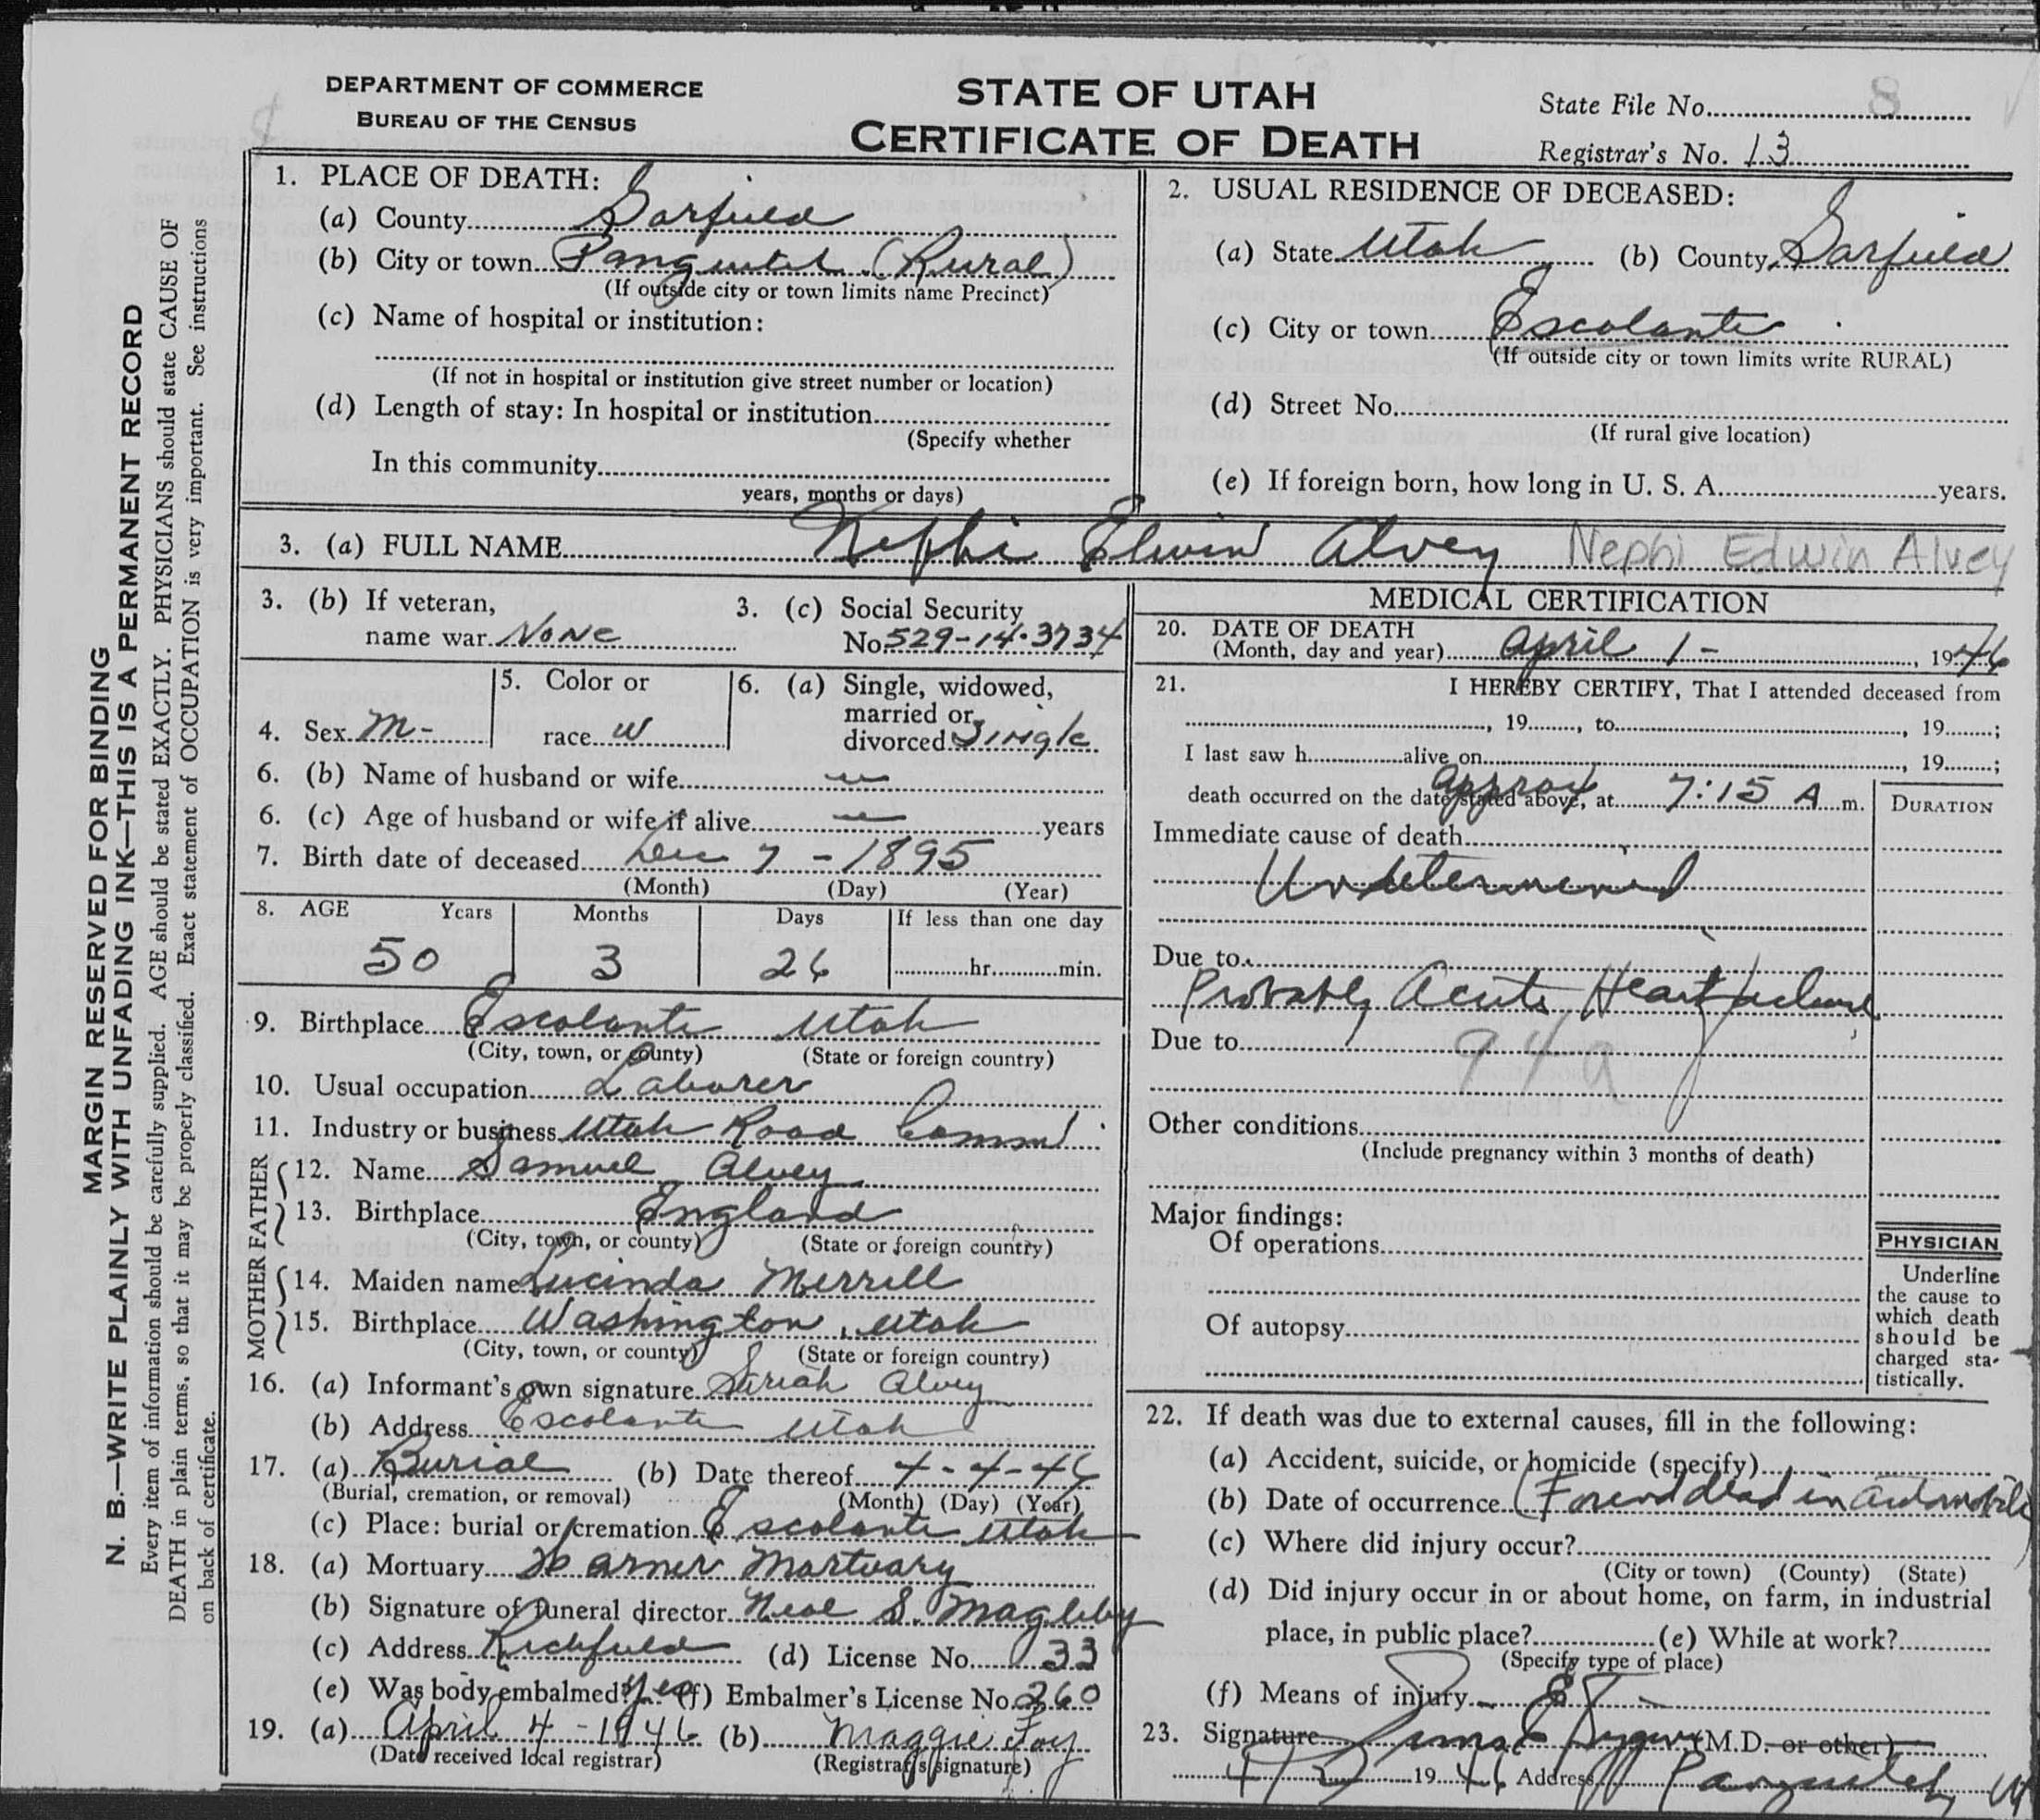 DEPARTMENT OF COMMERCE
BUREAU OF THE CENSUS
STATE OF UTAH
CERTIFICATE OF DEATH
State File No. 8
Registrar's No. 13
MARGIN RESERVED FOR BINDING
N. B.—WRITE PLAINLY WITH UNFADING INK—THIS IS A PERMANENT RECORD
Every item of information should be carefully supplied. AGE should be stated EXACTLY. PHYSICIANS should state CAUSE OF
DEATH in plain terms, so that it may be properly classified. Exact statement of OCCUPATION is very important. See instructions
on back of certificate.
1. PLACE OF DEATH:
(a) County Garfield
(b) City or town Panguitch (Rural)
(If outside city or town limits name Precinct)
(c) Name of hospital or institution:
(If not in hospital or institution give street number or location)
(d) Length of stay: In hospital or institution
(Specify whether
In this community
years, months or days)
2. USUAL RESIDENCE OF DECEASED:
(a) State Utah (b) County Garfield
(c) City or town Escalante
(If outside city or town limits write RURAL)
(d) Street No.
(If rural give location)
(e) If foreign born, how long in U. S. A. years.
3. (a) FULL NAME Nephi Elwin Alvey Nephi Edwin Alvey
3. (b) If veteran,
name war None
3. (c) Social Security
No 529-14-3734
4. Sex M-
5. Color or
race W
6. (a) Single, widowed,
married or
divorced Single
6. (b) Name of husband or wife —
6. (c) Age of husband or wife if alive — years
7. Birth date of deceased Dec 7 - 1895
(Month) (Day) (Year)
8. AGE Years Months Days If less than one day
50 3 24 hr. min.
9. Birthplace Escalante Utah
(City, town, or county) (State or foreign country)
10. Usual occupation Laborer
11. Industry or business Utah Road Comm'
FATHER
12. Name Samuel Alvey
13. Birthplace England
(City, town, or county) (State or foreign country)
MOTHER
14. Maiden name Lucinda Merrell
15. Birthplace Washington, Utah
(City, town, or county) (State or foreign country)
16. (a) Informant's own signature Alvey
(b) Address Escalante Utah
17. (a) Burial (b) Date thereof 4-4-46
(Burial, cremation, or removal) (Month) (Day) (Year)
(c) Place: burial or cremation Escalante Utah
18. (a) Mortuary Mortuary
(b) Signature of funeral director Neal S. Magleby
(c) Address Richfield (d) License No. 33
(e) Was body embalmed? Yes (f) Embalmer's License No. 260
19. (a) April 4 - 1946 (b) Maggie Foy
(Date received local registrar) (Registrar's signature)
MEDICAL CERTIFICATION
20. DATE OF DEATH
(Month, day and year) April 1 - , 1946
21. I HEREBY CERTIFY, That I attended deceased from
, 19 , to , 19 ;
I last saw h alive on , 19 ;
approx
death occurred on the date stated above, at 7:15 A m.
DURATION
Immediate cause of death
Undetermined
Due to
Probably Acute Heart failure
Due to 94a
Other conditions
(Include pregnancy within 3 months of death)
Major findings:
Of operations
Of autopsy
PHYSICIAN
Underline
the cause to
which death
should be
charged sta-
tistically.
22. If death was due to external causes, fill in the following:
(a) Accident, suicide, or homicide (specify)
(b) Date of occurrence (Found dead in automobile)
(c) Where did injury occur?
(City or town) (County) (State)
(d) Did injury occur in or about home, on farm, in industrial
place, in public place? (e) While at work?
(Specify type of place)
(f) Means of injury
23. Signature (M.D. or other)
19 46 Address Panguitch Ut